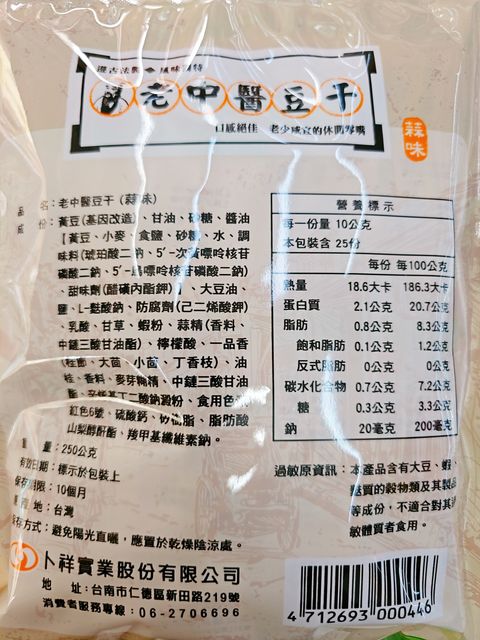 遵古法製 風味獨特
老中醫豆干
口感絕佳 老少咸宜的休閒零嘴
蒜味
品名：老中醫豆干(蒜味)
成份：黃豆(基因改造)、甘油、砂糖、醬油
【黃豆、小麥、食鹽、砂糖、水、調
味料(琥珀酸二鈉、5'-次黃嘌呤核苷
磷酸二鈉、5'-鳥嘌呤核苷磷酸二鈉)
、甜味劑(醋磺內酯鉀)】、大豆油、
鹽、L-麩酸鈉、防腐劑(己二烯酸鉀)
、乳酸、甘草、蝦粉、蒜精(香料、
中鏈三酸甘油酯)、檸檬酸、一品香
(桂郎、大茴、小茴、丁香枝)、油
桂、香料、麥芽糊精、中鏈三酸甘油
酯、辛烯基丁二酸鈉澱粉、食用色
紅色6號、硫酸鈣、矽樹脂、脂肪酸
山梨醇酐酯、羧甲基纖維素鈉。
重量：250公克
有效日期：標示於包裝上
保存期限：10個月
原產地：台灣
保存方式：避免陽光直曬，應置於乾燥陰涼處。
卜祥實業股份有限公司
地址：台南市仁德區新田路219號
消費者服務專線：06-2706696
營養標示
每一份量 10公克
本包裝含 25份
每份 每100公克
熱量 18.6大卡 186.3大卡
蛋白質 2.1公克 20.7公克
脂肪 0.8公克 8.3公克
飽和脂肪 0.1公克 1.2公克
反式脂肪 0公克 0公克
碳水化合物 0.7公克 7.2公克
糖 0.3公克 3.3公克
鈉 20毫克 200毫克
過敏原資訊：本產品含有大豆、蝦、
麩質的穀物類及其製品
等成份，不適合對其過
敏體質者食用。
4 712693 000446